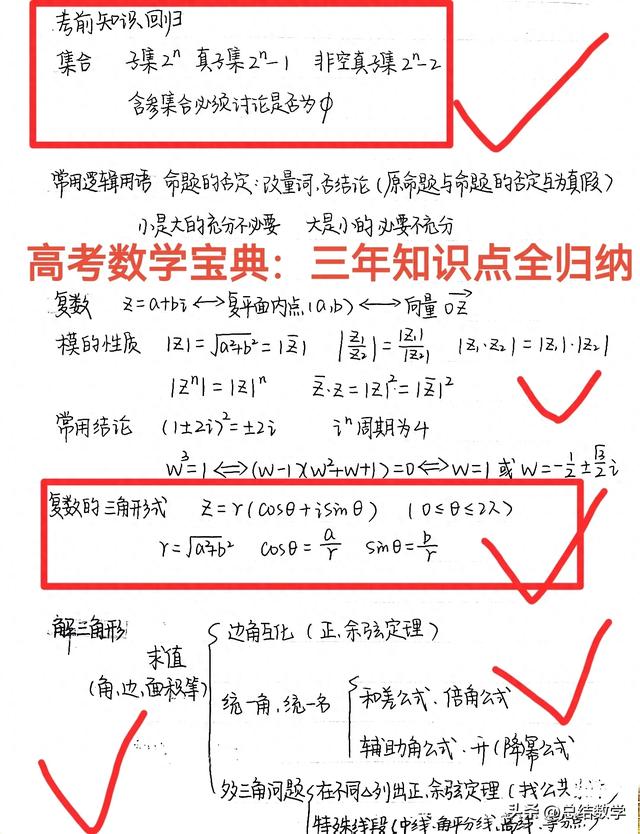 考前知识回归
集合 子集2ⁿ 真子集2ⁿ-1 非空真子集2ⁿ-2
含参集合必须讨论是否为∅
常用逻辑用语 命题的否定:改量词,否结论(原命题与命题的否定互为真假)
小是大的充分不必要 大是小的必要不充分
高考数学宝典：三年知识点全归纳
复数 z=a+bi ⟷ 复平面内点(a,b) ⟷ 向量 OZ→
模的性质 |z|=√(a²+b²)=|z̄| |z₁/z₂|=|z₁|/|z₂| |z₁·z₂|=|z₁|·|z₂|
|zⁿ|=|z|ⁿ z̄·z=|z|²=|z̄|²
常用结论 (1±2i)²=±2i iⁿ周期为4
w³=1⟺(w-1)(w²+w+1)=0⟺w=1 或 w=-1/2±√3/2 i
复数的三角形式 z=r(cosθ+isinθ) (0≤θ≤2π)
r=√(a²+b²) cosθ=a/r sinθ=b/r
解三角形
求值
(角,边,面积等)
边角互化 (正,余弦定理)
统一角,统一名
和差公式·倍角公式
辅助角公式·升(降)幂公式
多三角问题 在不同△列出正,余弦定理(找公共
特殊线段(中线,角平分线,高线,等分点)
头条 @总结数学